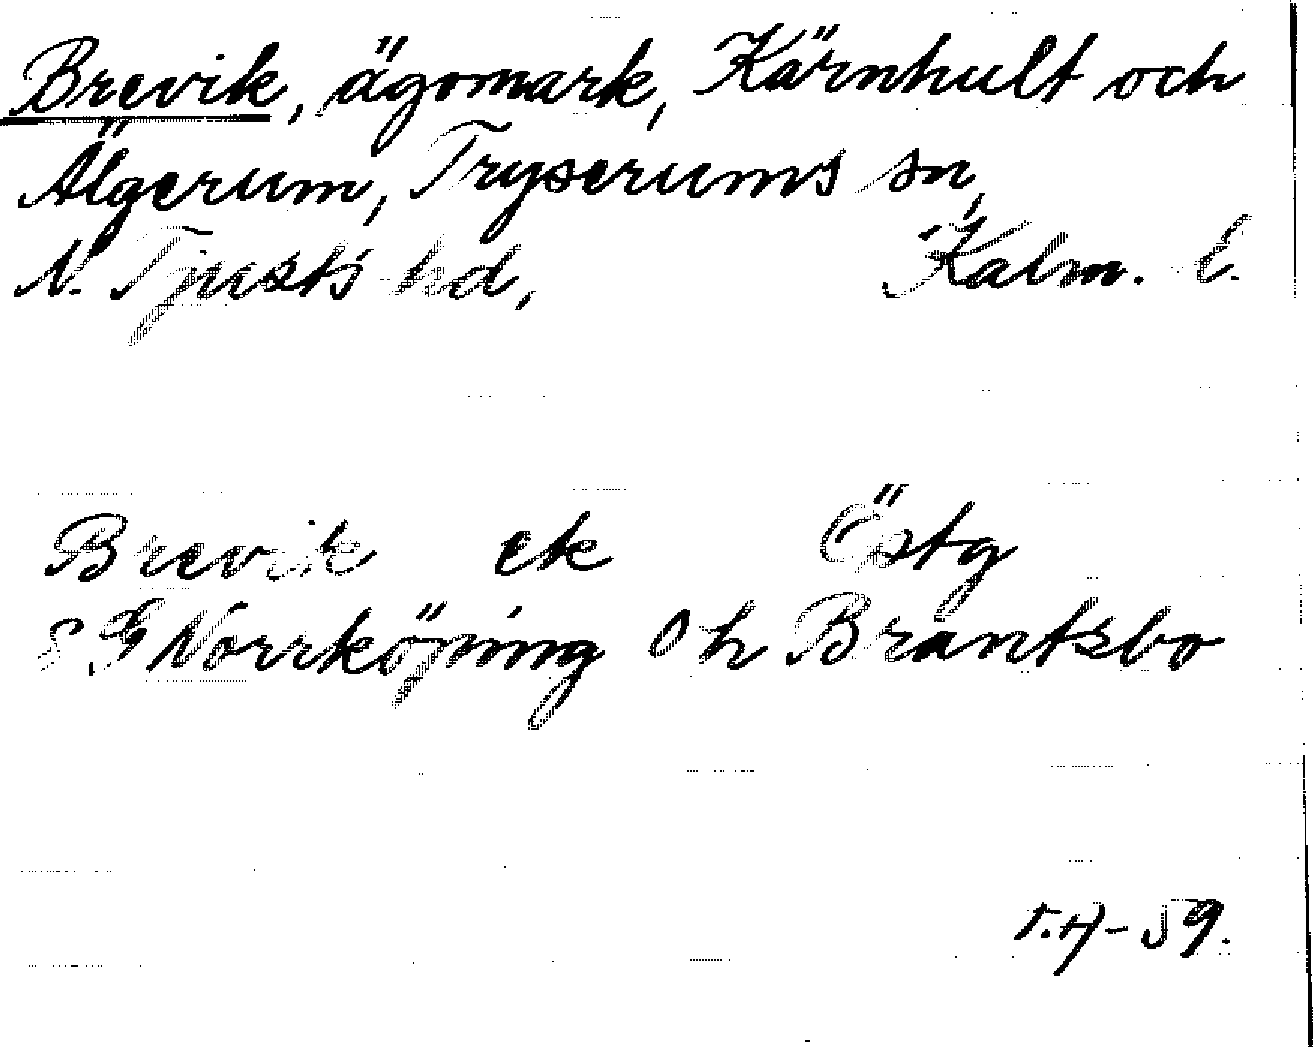 Brevik, ägomark, Kärnhult och
Älgerum, Tryserums sn,
N. Tjusts hd, Kalm. l.
Brevik ek Östg
8 G Norrköping Oh Brantsbo
T.H-59.